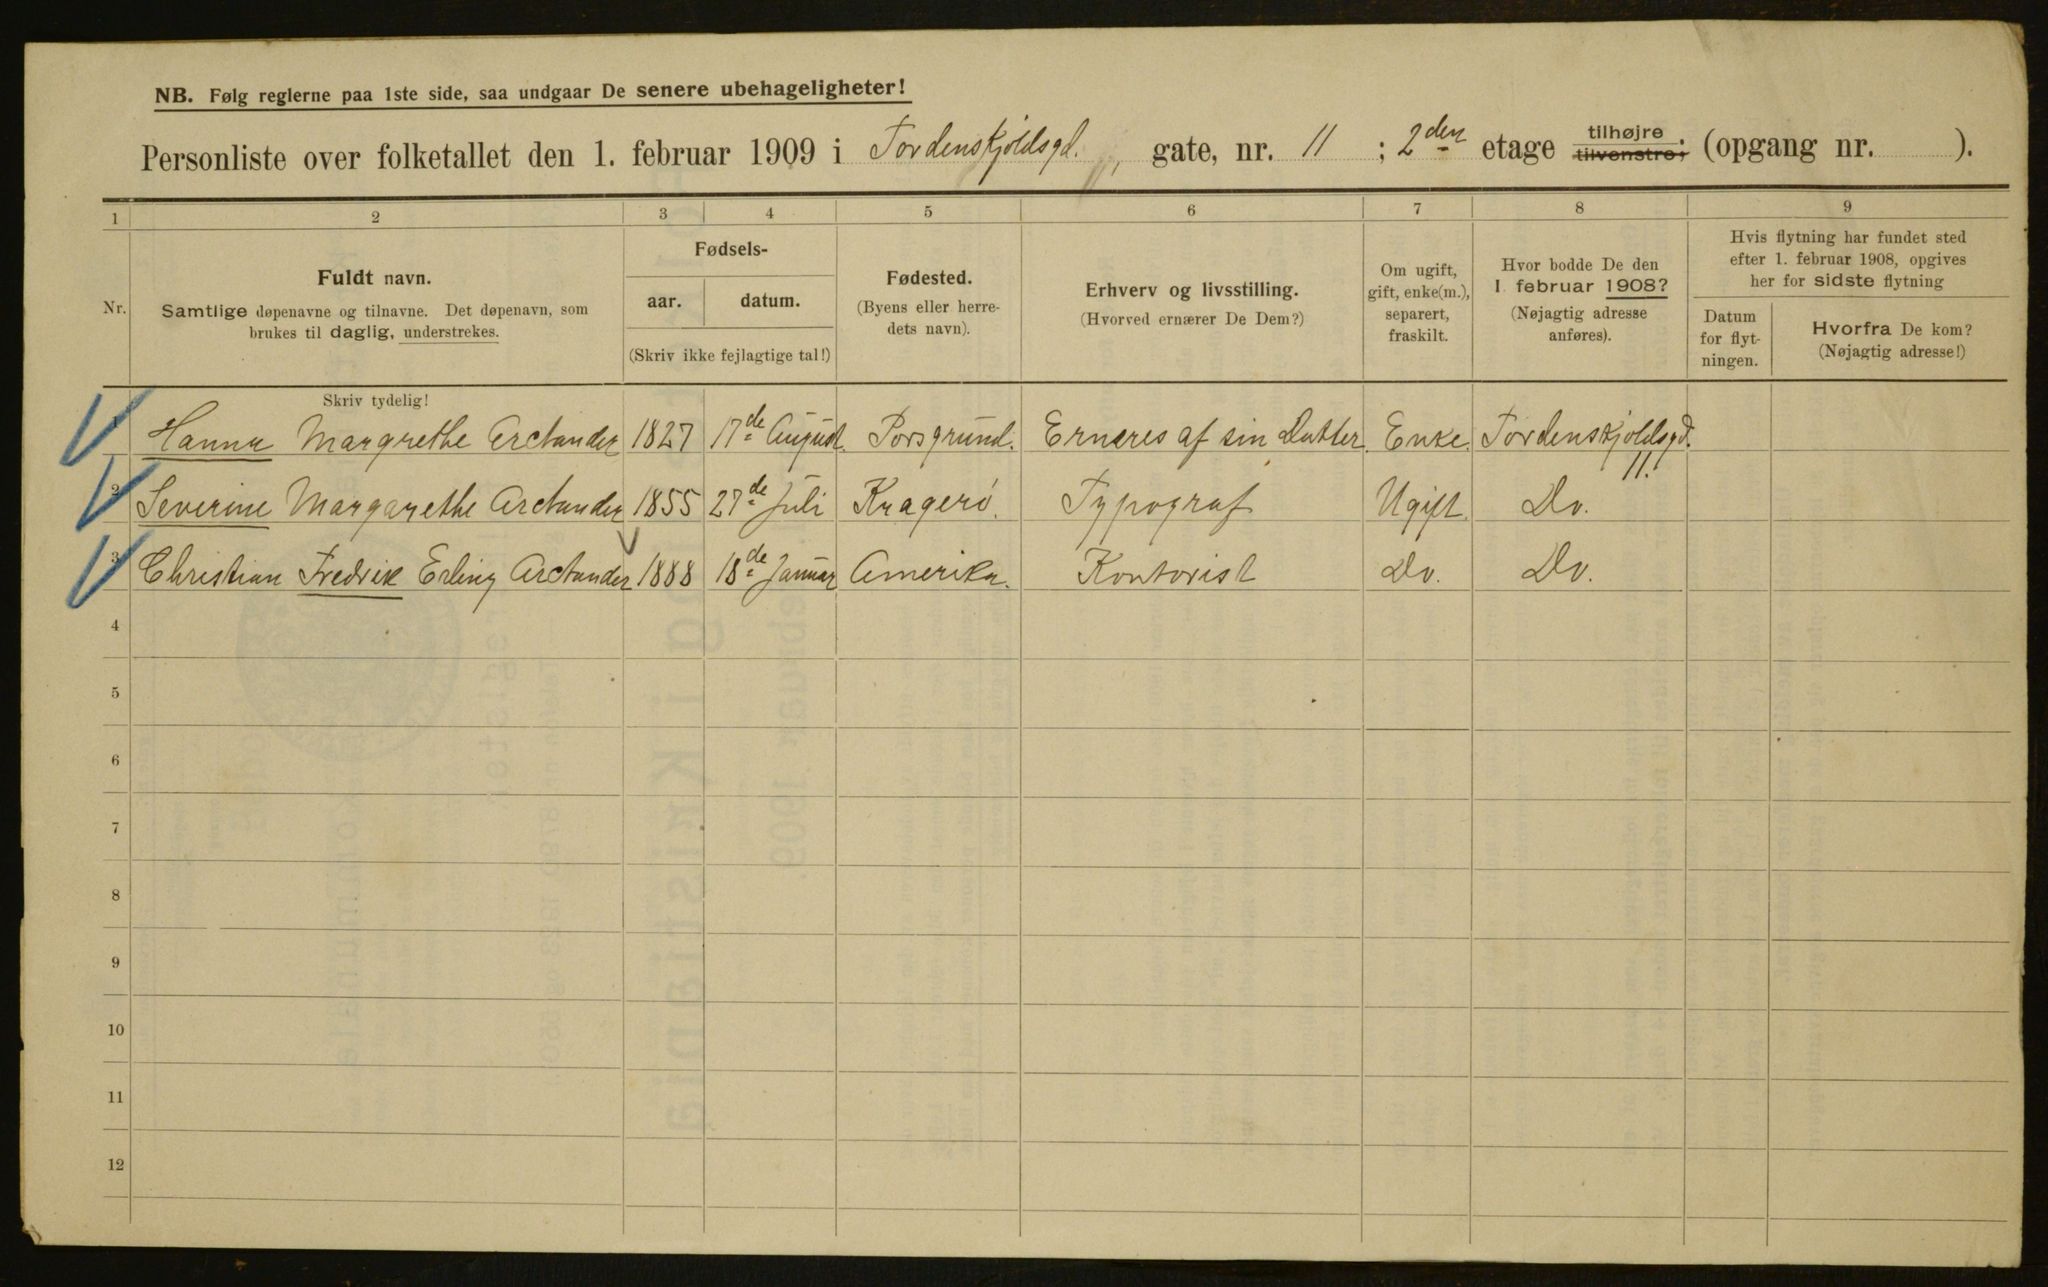 NB. Følg reglerne paa 1ste side, saa undgaar De senere ubehageligheter!
Personliste over folketallet den 1. februar 1909 i Tordenskjoldsgd., gate, nr. 11 ; 2den etage tilhøjre tilvenstre; (opgang nr. ).
1 2 3 4 5 6 7 8 9
Nr.
Fuldt navn.
Samtlige døpenavne og tilnavne. Det døpenavn, som
brukes til daglig, understrekes.
Fødsels-
aar. datum.
(Skriv ikke fejlagtige tal!)
Fødested.
(Byens eller herre-
dets navn).
Erhverv og livsstilling.
(Hvorved ernærer De Dem?)
Om ugift,
gift, enke(m.),
separert,
fraskilt.
Hvor bodde De den
1. februar 1908?
(Nøjagtig adresse
anføres).
Hvis flytning har fundet sted
efter 1. februar 1908, opgives
her for sidste flytning
Datum
for flyt-
ningen.
Hvorfra De kom?
(Nøjagtig adresse!)
Skriv tydelig!
1 Hanna Margrethe Arctander 1827 17de August. Porsgrund. Ernæres af sin Datter. Enke. Tordenskjoldsgd. 11.
2 Severine Margarethe Arctander 1855 27de Juli Kragerö. Typograf Ugift. Do.
3 Christian Fredrik Erling Arctander 1888 18de Januar Amerika. Kontorist Do. Do.
4
5
6
7
8
9
10
11
12